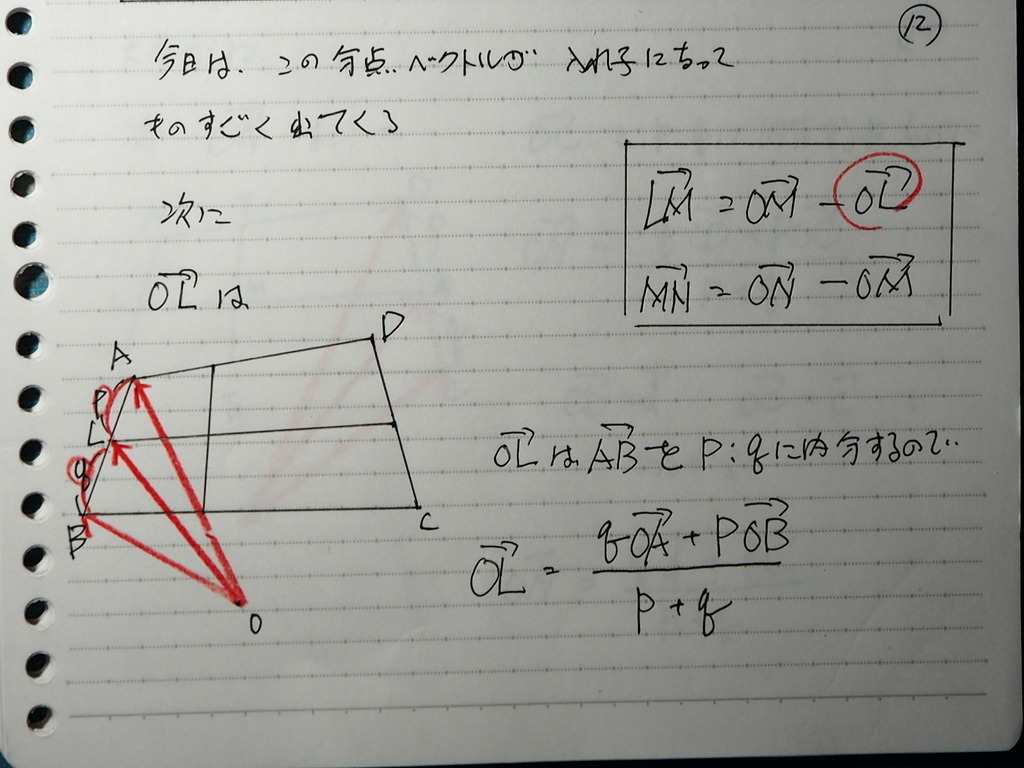 ⑫
今日は、この分点ベクトルが 入れ子になって
ものすごく出てくる
LM→ = OM→ − OL→
MN→ = ON→ − OM→
次に
OL→ は
A
D
P
L
q
B
C
O
OL→ は AB→ を P:q に内分するので
OL→ = (qOA→ + POB→) / (P + q)